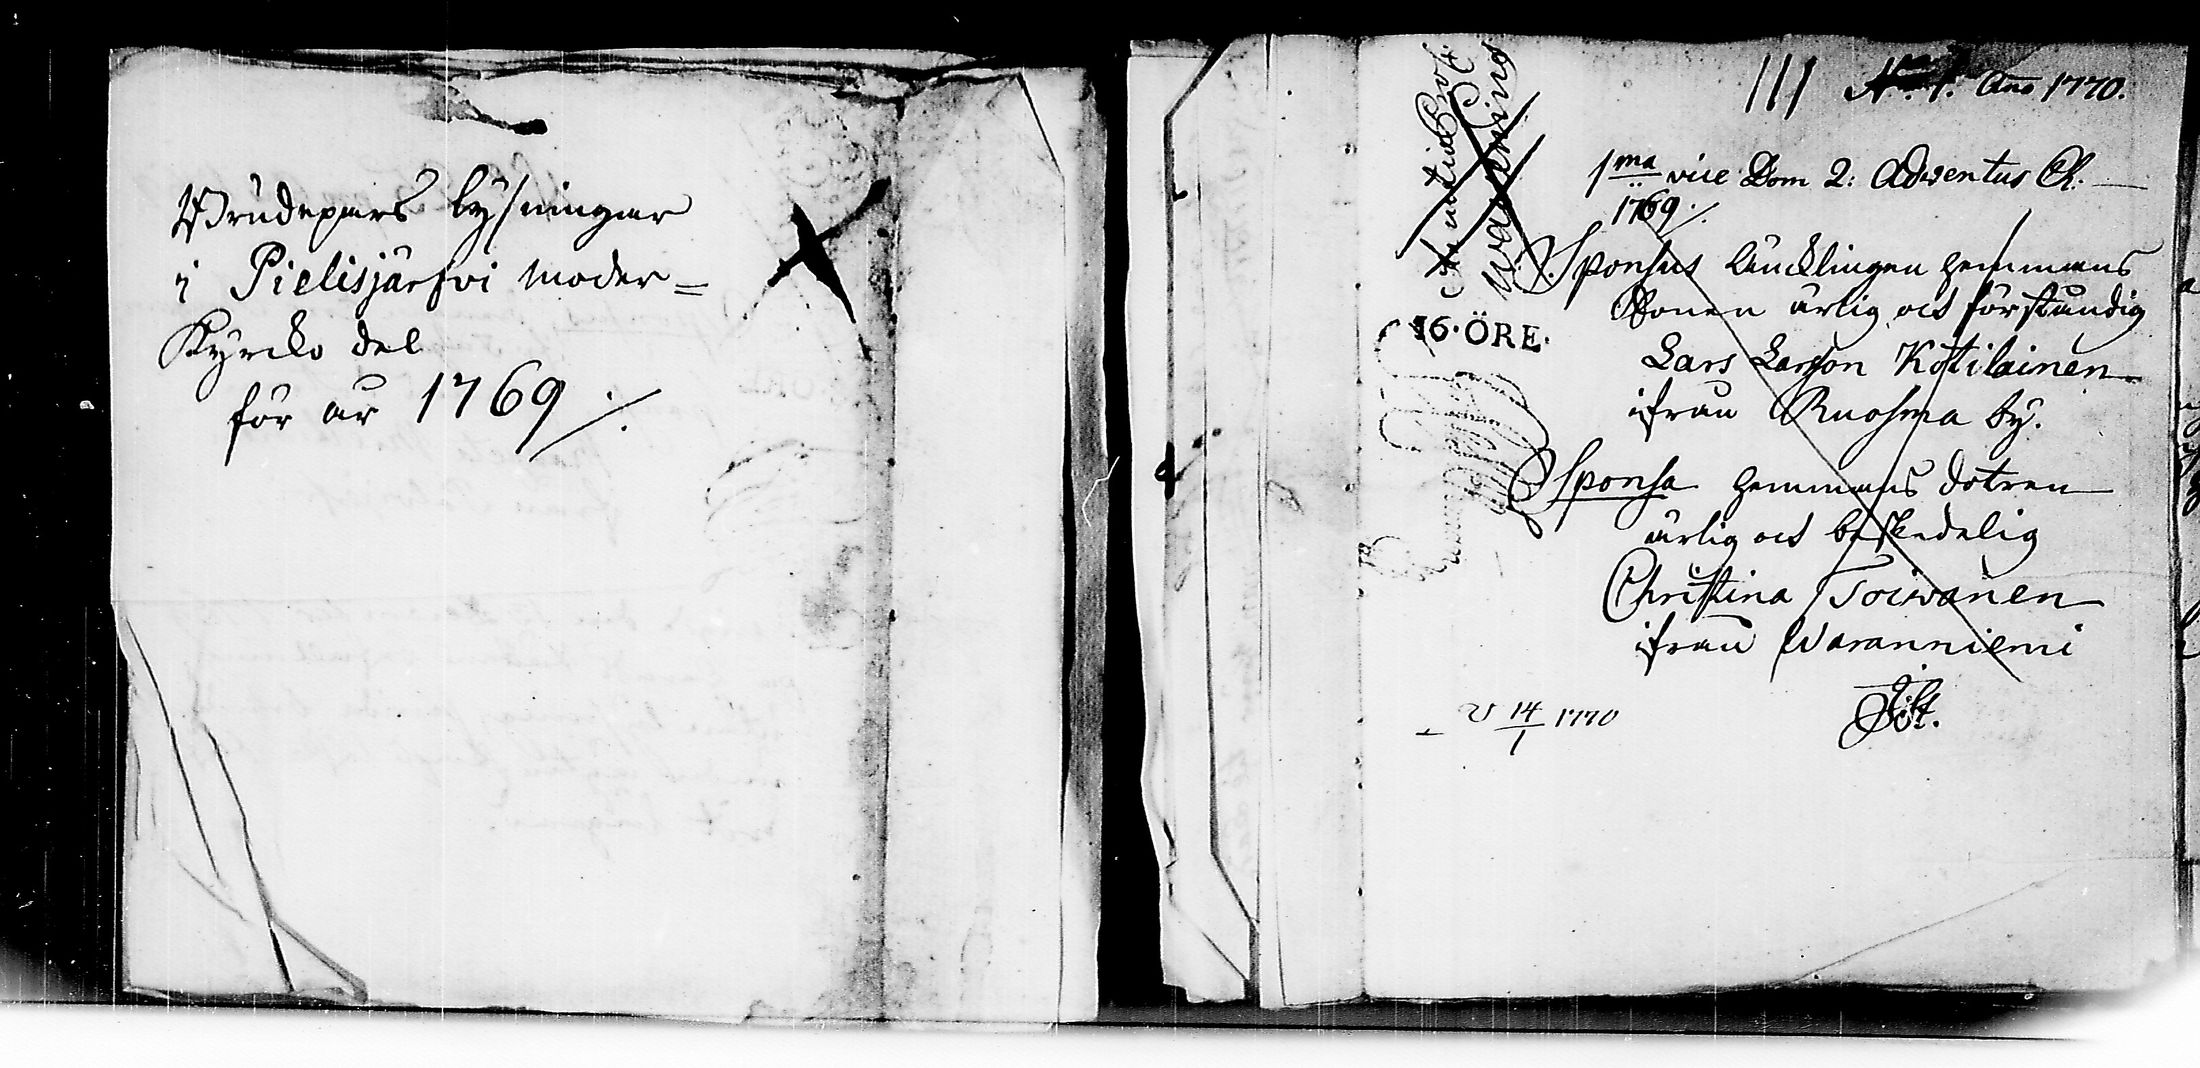 Brudepars lysningar
i Pielisjärfvi moder=
Kyrcko del
för år 1769 ./.
/// N:o 1. Ano 1770.
1ma vice Dom 2: Adventus Ch.
1769 ./.
Sponsus Äncklingen hemmans
Bonen ärlig och förståndig
Lars Larsson Kotilainen
ifrån Ruosma by.
Sponsa hemmans dotren
ärlig och beskedelig
Christina Toiwanen
ifrån Waranniemi
V 14/1 1770
16·ÖRE·